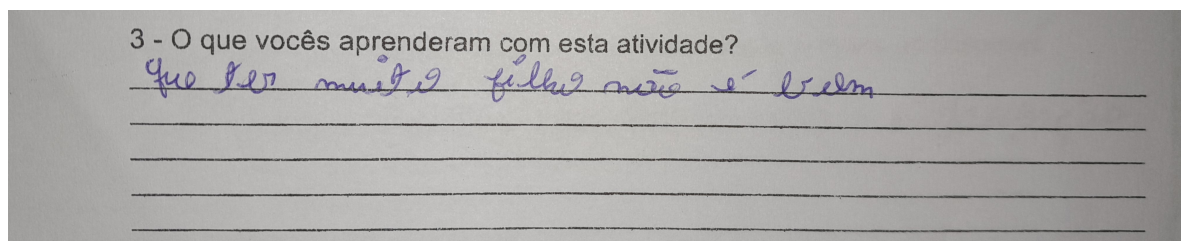 3 - O que vocês aprenderam com esta atividade?
que ter muito filho não é bem